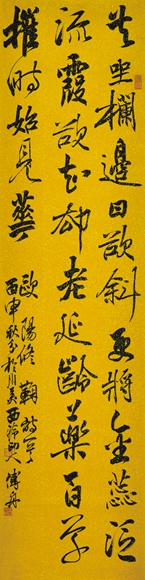 共坐欄邊日欲斜更將金蕊泛
流霞欲知却老延齡藥百草
摧時始見華
歐陽修菊詩一首
丙申秋分於川美西海
傅舟